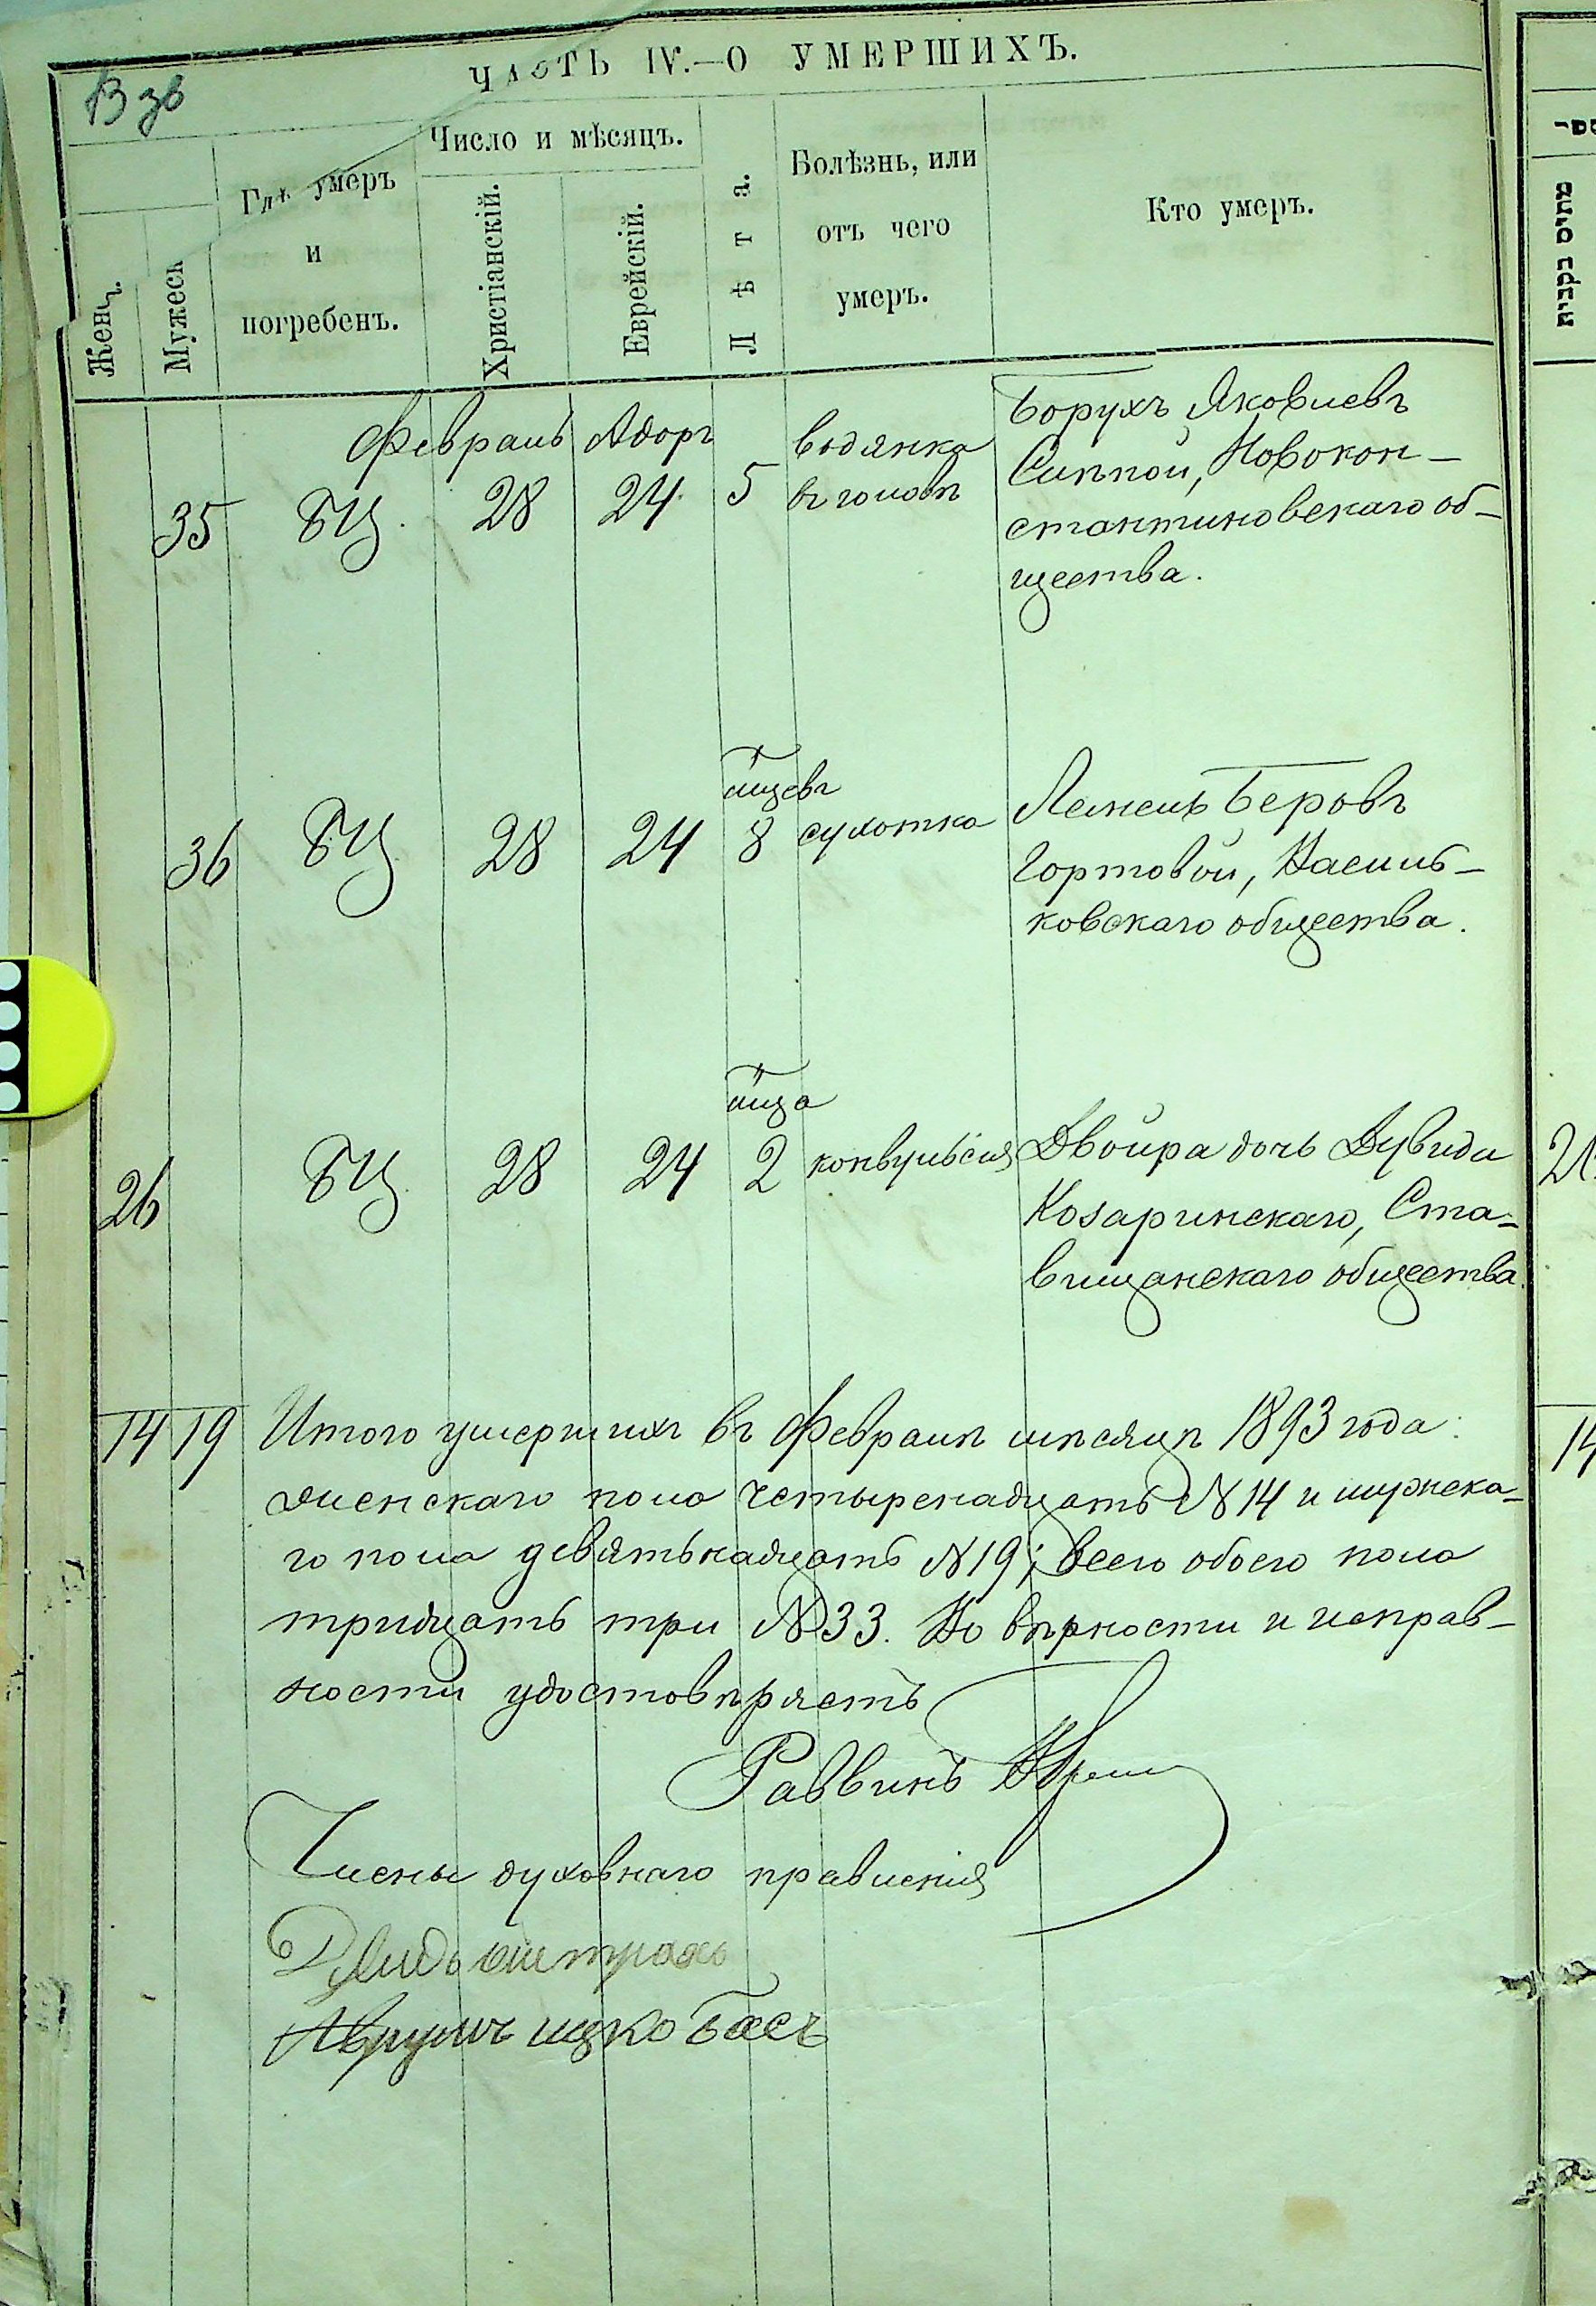 ЧАСТЬ IV.—О УМЕРШИХЪ.
Женщ.
Мужеск
Гдѣ умеръ
и
погребенъ.
Число и мѣсяцъ.
Христіанскій.
Еврейскій.
Лѣта.
Болѣзнь, или
отъ чего
умеръ.
Кто умеръ.
Февраль Адоръ
35 БЦ. 28 24 5
водянка
въ головѣ
Борухъ Яковлевъ
Новокон-
стантиновскаго об-
щества.
36 БЦ 28 24
мцевъ
8 сухотка
Беровъ
Гортовой, Василь-
ковскаго общества.
26 БЦ 28 24
мца
2 конвульсія
Двойра дочь Дувида
Козаринскаго, Ста-
вищанскаго общества.
14 19 Итого умершихъ въ Февралѣ мѣсяцѣ 1893 года:
женскаго пола четыренадцать №14 и мужска-
го пола девятьнадцать №19; всего обоего пола
тридцать три №33. Въ вѣрности и исправ-
ности удостовѣряетъ
Раввинъ
Члены духовнаго правленія
Аврумъ ицко Басъ
מתים בקביע
21
14